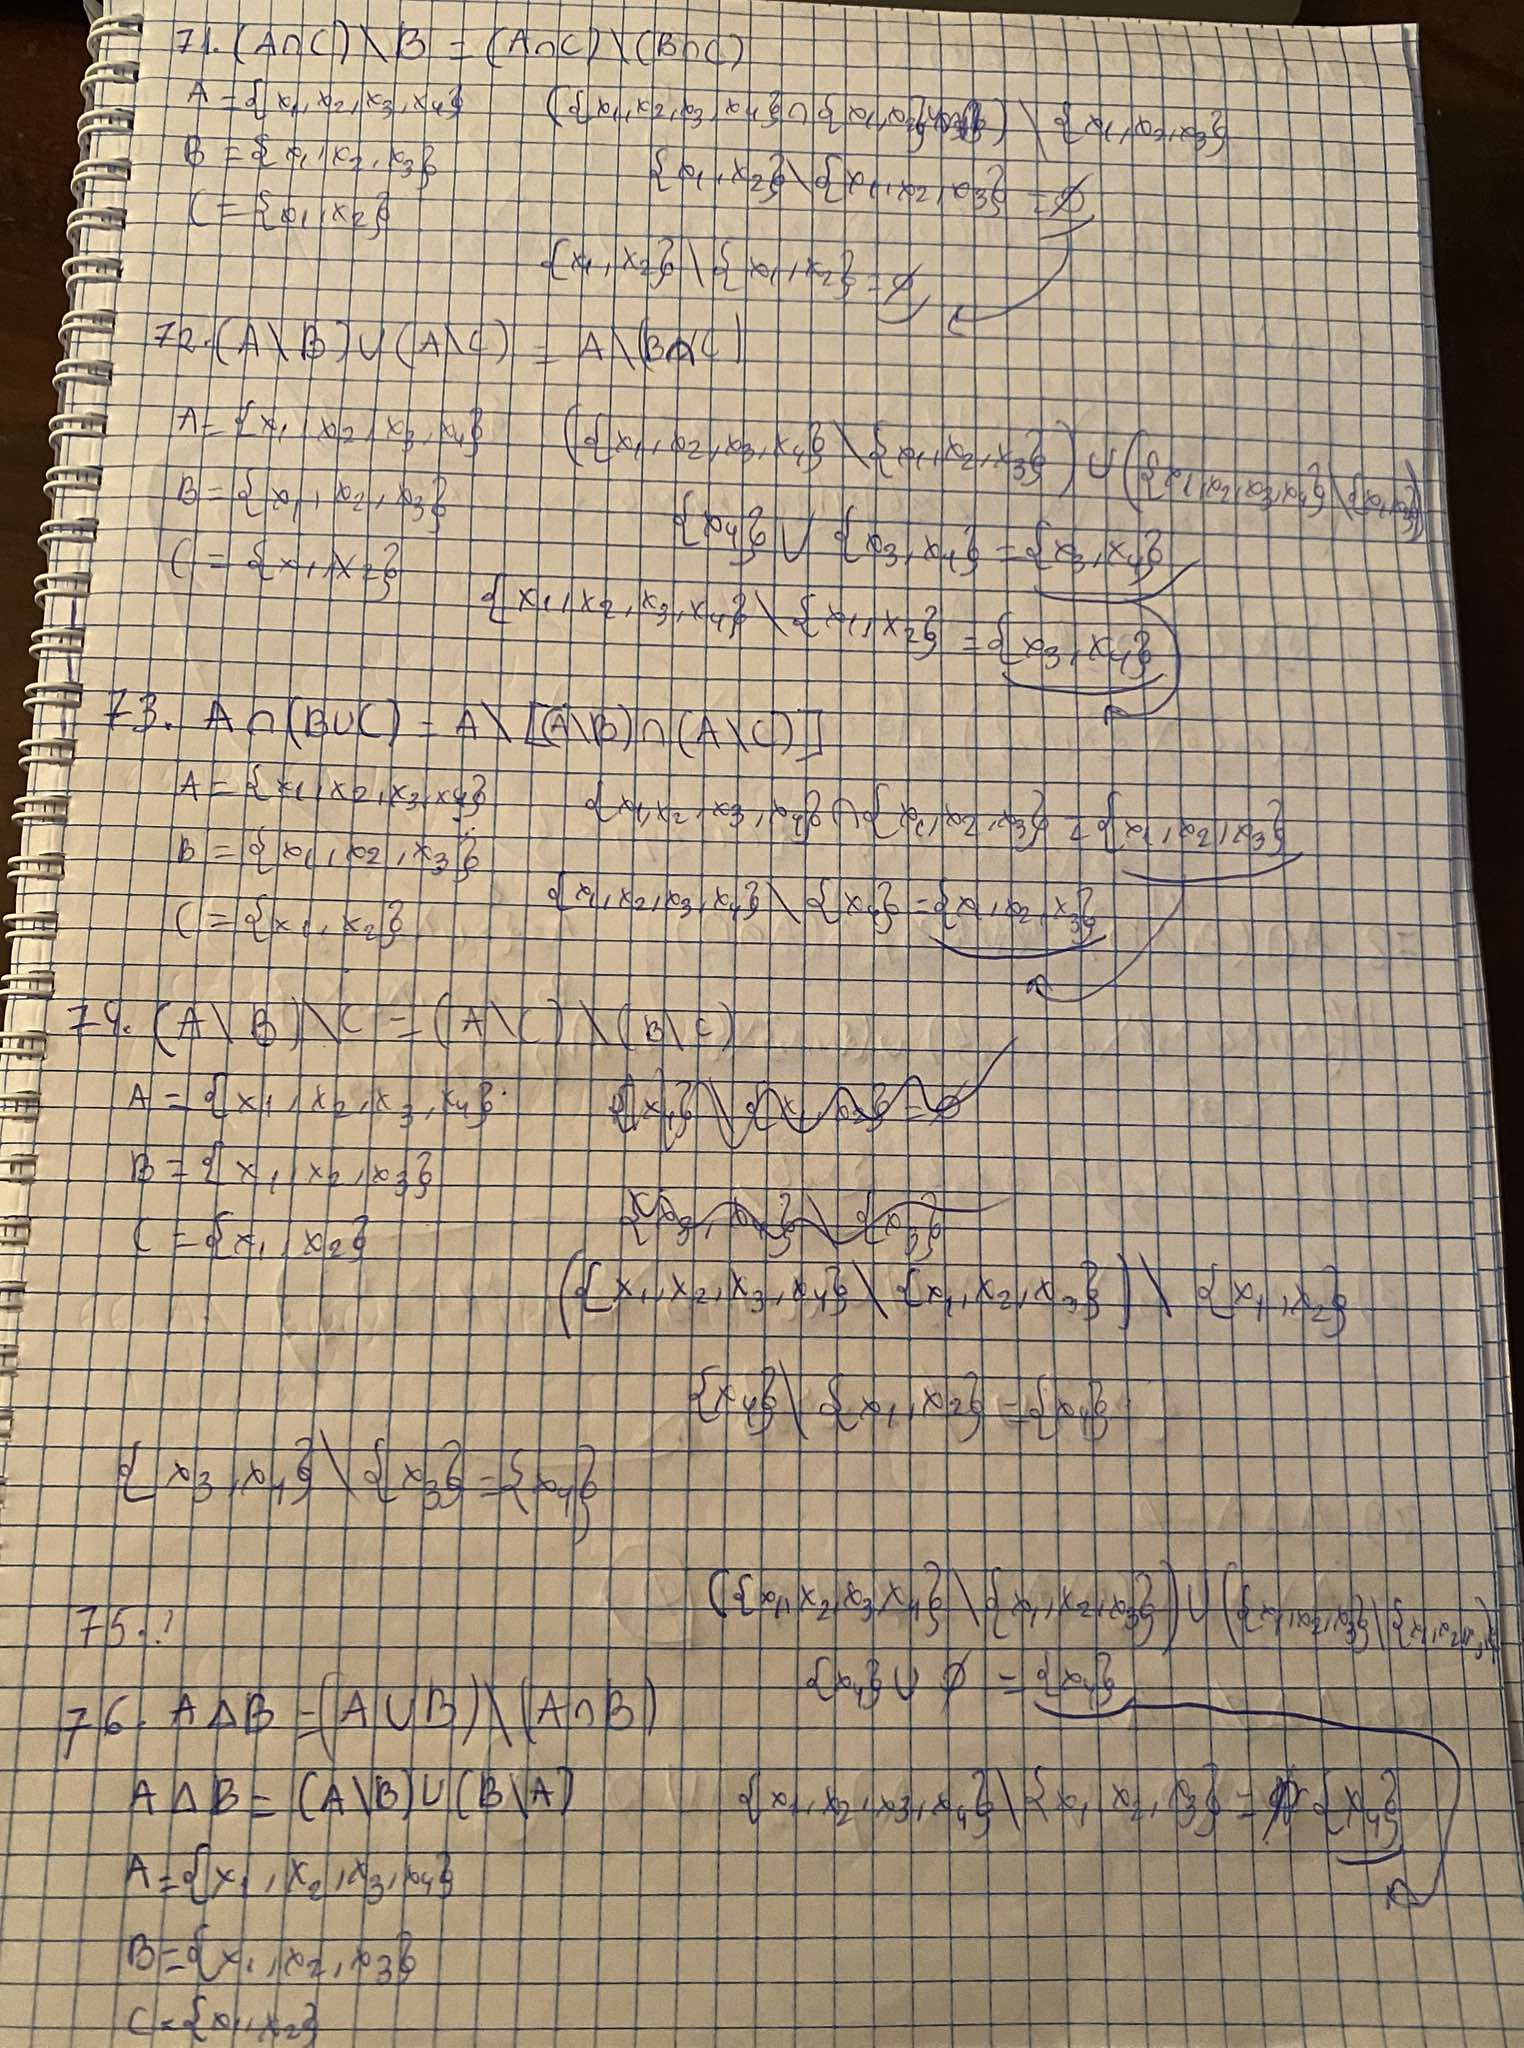 71. (A∩C) \ B = (A∩C) \ (B∩C)
A = {x₁, x₂, x₃, x₄} ({x₁, x₂, x₃, x₄} ∩ {x₁, x₂}) \ {x₁, x₂, x₃}
B = {x₁, x₂, x₃} {x₁, x₂} \ {x₁, x₂, x₃} = ∅
C = {x₁, x₂}
{x₁, x₂} \ {x₁, x₂} = ∅
72. (A \ B) ∪ (A \ C) = A \ (B∩C)
A = {x₁, x₂, x₃, x₄} ({x₁, x₂, x₃, x₄} \ {x₁, x₂, x₃}) ∪ ({x₁, x₂, x₃, x₄} \ {x₁, x₂})
B = {x₁, x₂, x₃} {x₄} ∪ {x₃, x₄} = {x₃, x₄}
C = {x₁, x₂}
{x₁, x₂, x₃, x₄} \ {x₁, x₂} = {x₃, x₄}
73. A∩(B∪C) = A \ [(A\B)∩(A\C)]
A = {x₁, x₂, x₃, x₄} {x₁, x₂, x₃, x₄} ∩ {x₁, x₂, x₃} = {x₁, x₂, x₃}
B = {x₁, x₂, x₃}
{x₁, x₂, x₃, x₄} \ {x₄} = {x₁, x₂, x₃}
C = {x₁, x₂}
74. (A \ B) \ C = (A \ C) \ (B \ C)
A = {x₁, x₂, x₃, x₄}
B = {x₁, x₂, x₃}
C = {x₁, x₂} {x₃, x₄} \ {x₃}
({x₁, x₂, x₃, x₄} \ {x₁, x₂, x₃}) \ {x₁, x₂}
{x₄} \ {x₁, x₂} = {x₄}
{x₃, x₄} \ {x₃} = {x₄}
({x₁, x₂, x₃, x₄} \ {x₁, x₂, x₃}) ∪ ({x₁, x₂, x₃} \ {x₁, x₂, x₃, x₄})
75. !
{x₄} ∪ ∅ = {x₄}
76. A △ B = (A ∪ B) \ (A ∩ B)
A △ B = (A \ B) ∪ (B \ A) {x₁, x₂, x₃, x₄} \ {x₁, x₂, x₃} = {x₄}
A = {x₁, x₂, x₃, x₄}
B = {x₁, x₂, x₃}
C = {x₁, x₂}